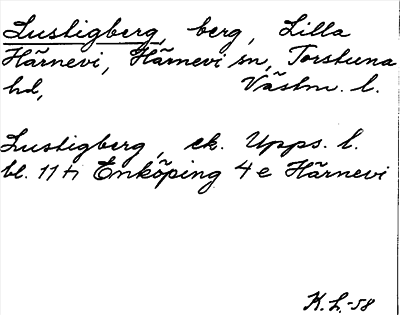 Lustigberg, berg, Lilla
Härnevi, Härnevi sn, Torstuna
hd, Västm. l.
Lustigberg, ek. Upps. l.
bl. 11 h Enköping 4 e Härnevi
K.L.-58